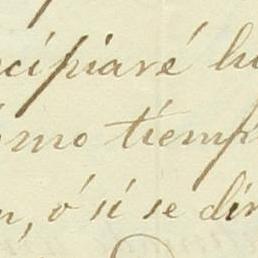 cipiaré lu
smo tiemp
n, ó si se dir